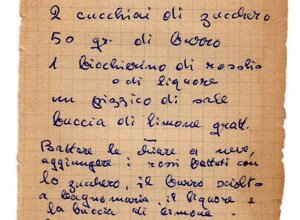 2 cucchiai di zucchero
50 gr. di burro
1 bicchierino di rosolio
o di liquore
un pizzico di sale
buccia di limone gratt.
Battere le chiare a neve,
aggiungere i rossi battuti con
lo zucchero, il burro sciolto
a bagnomaria, il liquore e
la buccia di limone